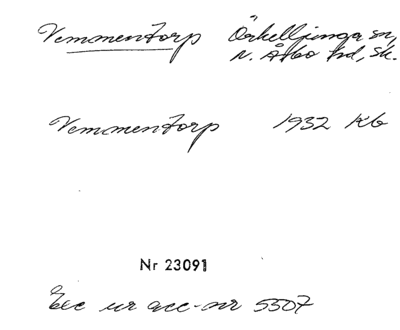 Vemmentorp Örkelljunga sn,
N. Åsbo hd, Sk.
Vemmentorp 1932 Kb
Nr 23091
Exc ur acc-nr 5507